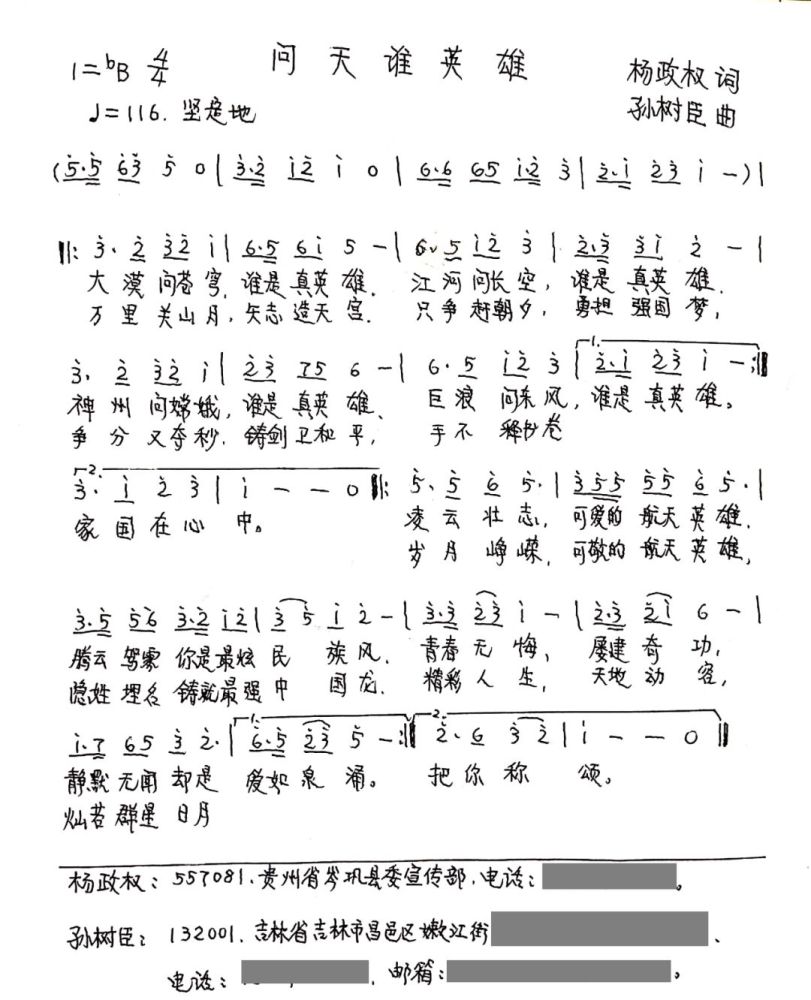 问天谁英雄
1=ᵇB 4/4
♩=116. 坚定地
杨政权 词
孙树臣 曲
(5·5 63 5 0 | 3·2 12 1 0 | 6·6 65 1·2 3 | 2·1 23 1 -) |
‖: 3· 2 32 1 | 6·5 61 5 - | 6· 5 12 3 | 2·3 31 2 - |
大漠问苍穹,谁是真英雄. 江河问长空,谁是真英雄.
万里关山月,矢志造天宫. 只争赶朝夕,勇担强国梦,
3· 2 32 1 | 23 75 6 - | 6· 5 12 3 | 1. 2·1 23 1 - :‖
神州问嫦娥,谁是真英雄、 巨浪问东风,谁是真英雄。
争分又夺秒.铸剑卫和平, 手不释书卷
2. 3· 1 2 3 | 1 - - 0 ‖: 5· 5 6 5· | 355 55 6 5· |
家国在心中。 凌云壮志,可爱的航天英雄.
岁月峥嵘,可敬的航天英雄,
3·5 56 3·2 12 | 3 5 1 2 - | 3·3 23 1 - | 2·3 21 6 - |
腾云驾雾你是最炫民族风. 青春无悔、屡建奇功,
隐姓埋名铸就最强中国龙. 精彩人生,天地动容,
1·7 65 3 2· | 1. 6·5 23 5 - :‖ 2. 2· 6 3 2 | 1 - - 0 ‖
静默无闻却是爱如泉涌。 把你称颂。
灿若群星日月
杨政权:557081.贵州省岑巩县委宣传部.电话: 。
孙树臣:132001.吉林省吉林市昌邑区嫩江街 、
电话: . 邮箱: 。